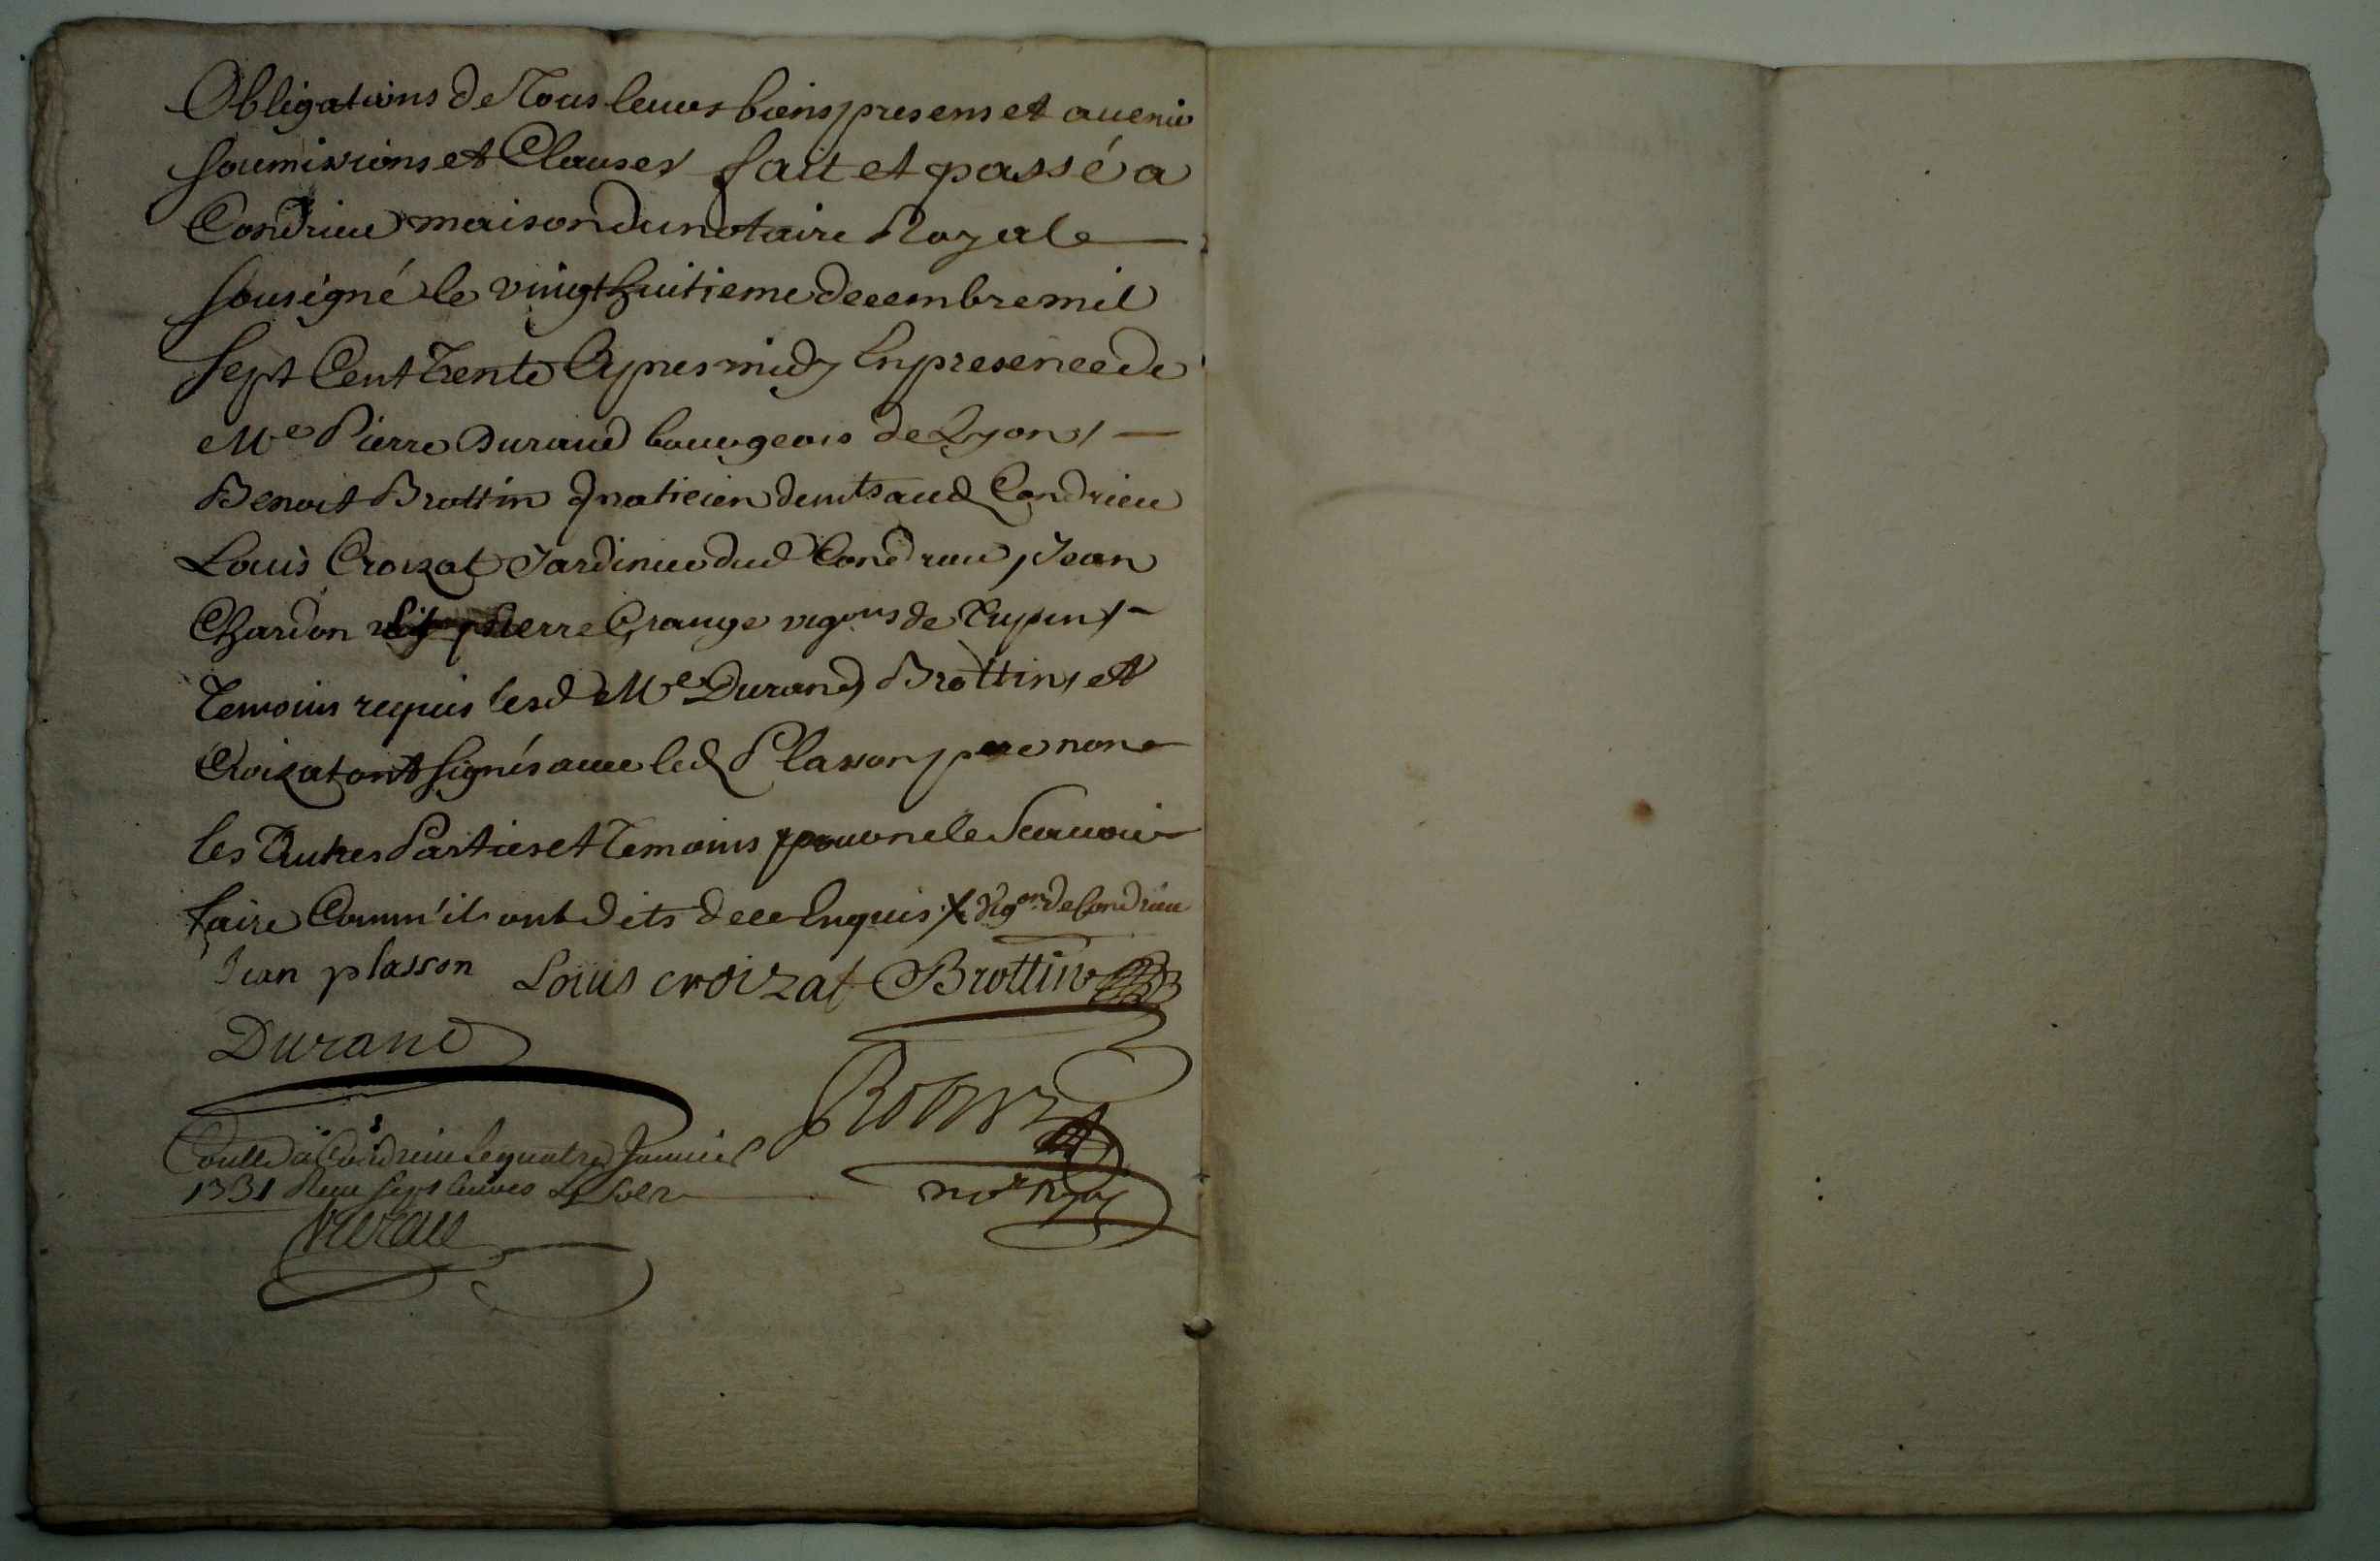 Obligations de Tous leurs biens presens et avenir
soumissions et Clauses fait et passé a
Condrieu maison du notaire Royale
sousigné le vingt huitieme decembre mil
sept Cent Trente Apres midy En presence de
Me Pierre Durand bourgeois de Lyon,
Benoit Brottin praticien demt aud Condrieu
Louis Croizat Jardinier dud Condrieu, Jean
Chardon pierre Grange vigons de Tupin,
Temoins requis lesd Me Durand Brottin, et
Croizat ont signés avec led Plasson pere non
les Autres Parties et Temoins pour ne le Scavoir
faire Comm'ils ont dits de ce Enquis x vigon de Condrieu
Jean plasson Louis croizat Brottin
Durand
Contlé a Condrieu le quatre Janvier
1731 Reçu sept livres